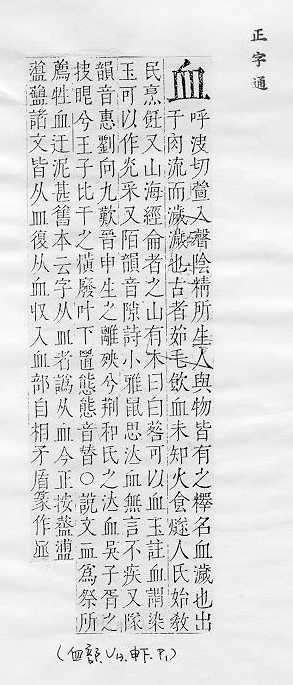 正字通
血
呼波切萱入聲陰精所生人與物皆有之釋名血濊也出
于肉流而濊濊也古者茹毛飲血未知火食燧人氏始教
民烹飪又山海經侖者之山有木曰白䓘可以血玉註血謂染
玉可以作光采又陌韻音隙詩小雅鼠思泣血無言不疾又隊
韻音惠劉向九歎晉申生之離殃兮荆和氏之泣血吳子胥之
抉眼兮王子比干之橫廢叶下置態態音替○說文血爲祭所
薦牲血迂泥甚舊本云字从血者譌从皿今正按
諸文皆从血復从皿收入皿部自相矛盾篆作